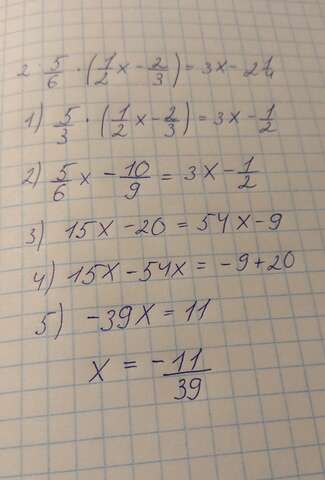 2 · 5/6 · (1/2 x − 2/3) = 3x −
1) 5/3 · (1/2 x − 2/3) = 3x − 1/2
2) 5/6 x − 10/9 = 3x − 1/2
3) 15x − 20 = 54x − 9
4) 15x − 54x = −9 + 20
5) −39x = 11
x = −11/39